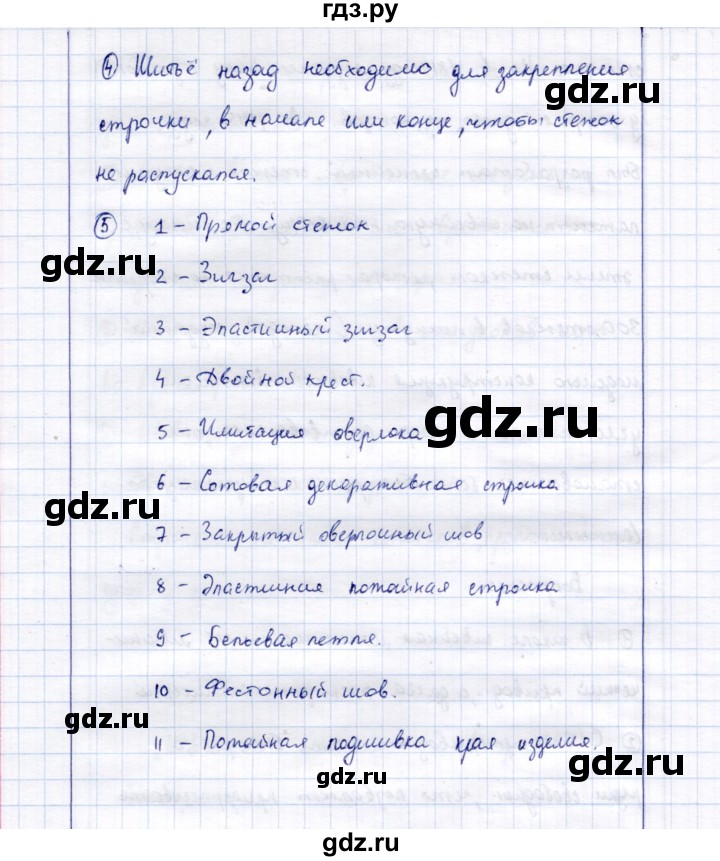 гдз.ру
④ Шитьё назад необходимо для закрепления
gdz.ru
строчки, в начале или конце, чтобы стежок
не распускался.
⑤ 1 - Прямой стежок
gdz.ru
2 - Зигзаг
3 - Эластичный зигзаг
4 - Двойной крест.
5 - Имитация оверлока
gdz.ru
6 - Сотовая декоративная строчка
gdz.ru
7 - Закрытый оверлочный шов
8 - Эластичная потайная строчка
9 - Бельевая петля.
10 - Фестонный шов.
gdz.ru
11 - Потайная подшивка края изделия.
gdz.ru
gdz.ru